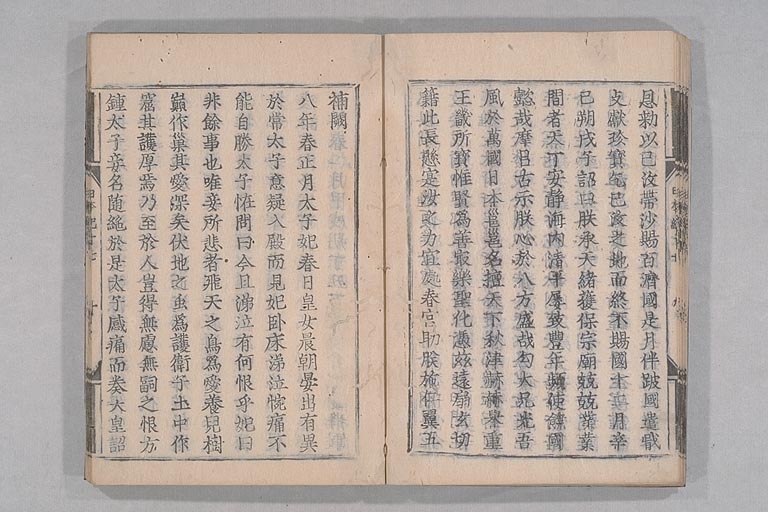 恩勅以己汶帶沙賜百濟國是月伴跛國遣戢
支獻珍寶乞己汶之地而終不賜國十二月辛
巳朔戊子詔曰朕承天緒獲保宗廟兢兢業業
間者天下安靜海內清平屢致豐年頻使饒國
懿哉摩呂古示朕心於八方盛哉勾大兄光吾
風於萬國日本邕邕名擅天下秋津赫赫譽重
王畿所寶惟賢為善最樂聖化憑茲遠扇玄功
籍此長懸寔汝之力宜處春宮助朕施仁翼吾
補闕
八年春正月太子妃春日皇女晨朝晏出有異
於常太子意疑入殿而見妃臥床涕泣惋痛不
能自勝太子恠問曰今旦涕泣有何恨乎妃曰
非餘事也唯妾所悲者飛天之鳥為愛養兒樹
巔作巢其愛深矣伏地之虫為護衛子土中作
窟其護厚焉乃至於人豈得無慮無嗣之恨方
鍾太子妾名隨絶於是太子感痛而奏天皇詔